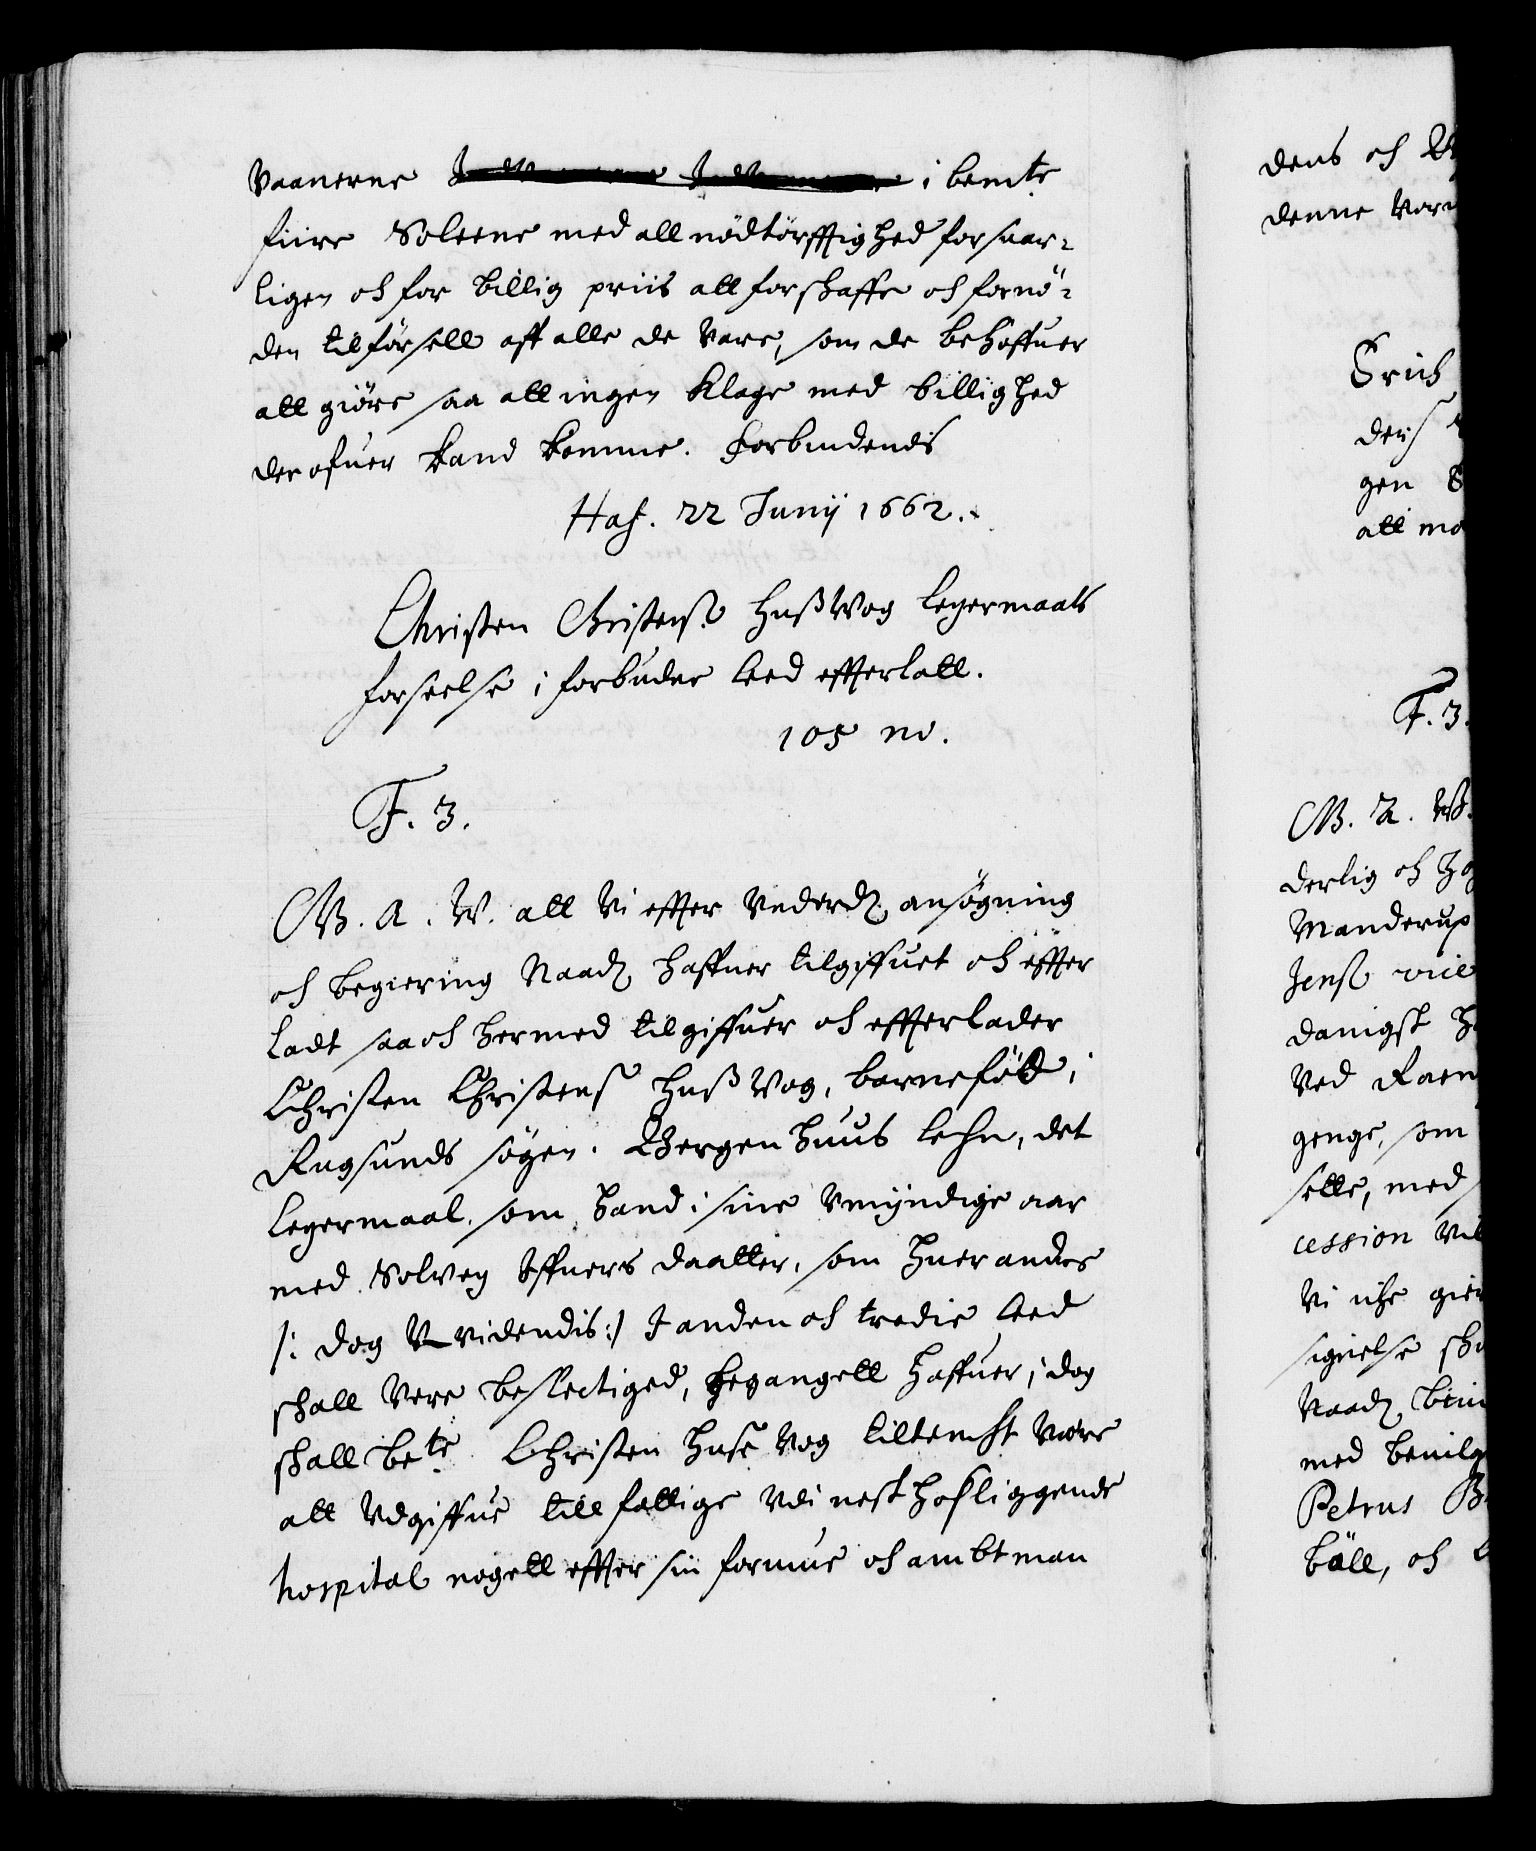 Vaanerne i bemte
fiire Soleene med all nödtörfftighed forsuar-
ligen och for billig priis att forskaffe och fornö-
den tilförsell aff alle de Vare, som de behoffuer
att giöre saa att ingen Klage med billighed
der ofuer kand komme. Forbindendis
Haf. 22 Junij 1662.
Christen Christens. Hußvog legermaals
forseelse i forbuden leed efferlatt.
105 no.
F. 3.
G. A. V. att Vi effter Underd. ansøgning
och begiering Naad. haffuer tilgiffuet och effter
ladt saa och hermed tilgiffuer och effterlader
Christen Christens Hußvog, barneföd i
Rugsunds sögen. Bergenhuus lehn, det
legermaal, som hand i sine Vmyndige aar
med Solveg Iffuers daatter, som huer andre
/: dog Vvidendis:/ I anden och tredie leed
skall Vere beslectiged, begangett haffuer, dog
skall bete Christen Huse Vog tiltencht Være
att Udgiffue till fattige Udi nest hosliggende
hospital nogett effter sin formue och ambtman
dens och
denne
Erich
gen
att
F. 3.
G. A. V.
derlig och
Manderup
Jens
danigst
Ved
genge, som
selle, med
cession
Vi iche
signelse
Naad.
med
Petrus
och